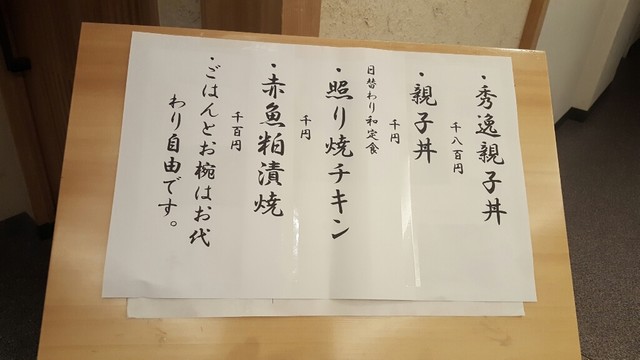 ・秀逸親子丼
千八百円
・親子丼
千円
日替わり和定食
・照り焼チキン
千円
・赤魚粕漬焼
千百円
・ごはんとお椀はお代
わり自由です。